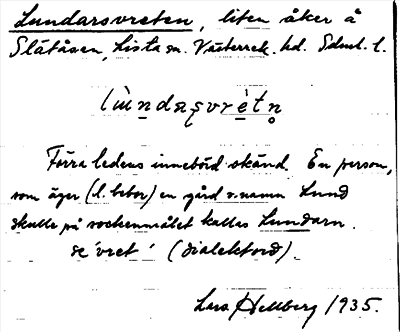 Lundarsvreten, liten åker å
Slätåsen, Lista sn. Västerrek. hd. Sdml. l.
lùndaṣvrètn̥
Förra ledens innebörd okänd. En person,
som äger (l. bebor) en gård v. namn Lund
skulle på sockenmålet kallas Lundarn.
se 'vret' (dialektord).
Lars Hellberg 1935.